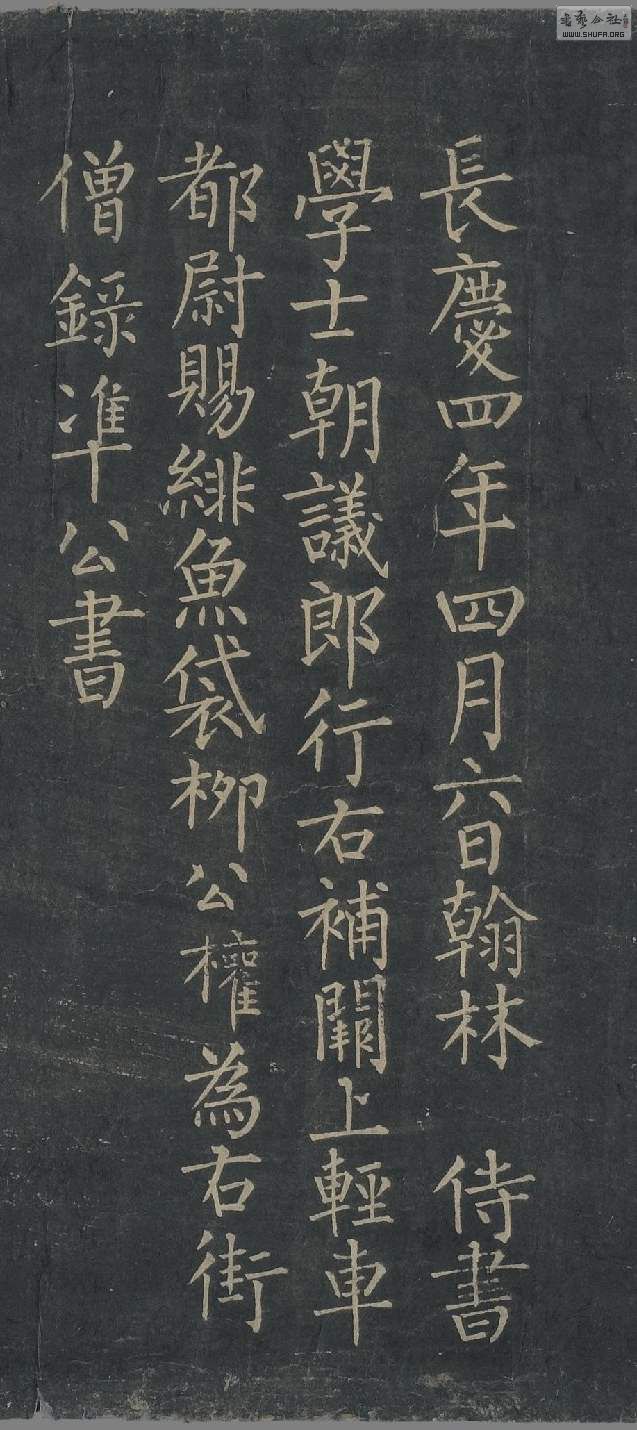 長慶四年四月六日翰林 侍書
學士朝議郎行右補闕上輕車
都尉賜緋魚袋柳公權為右街
僧錄準公書
WWW.SHUFA.ORG